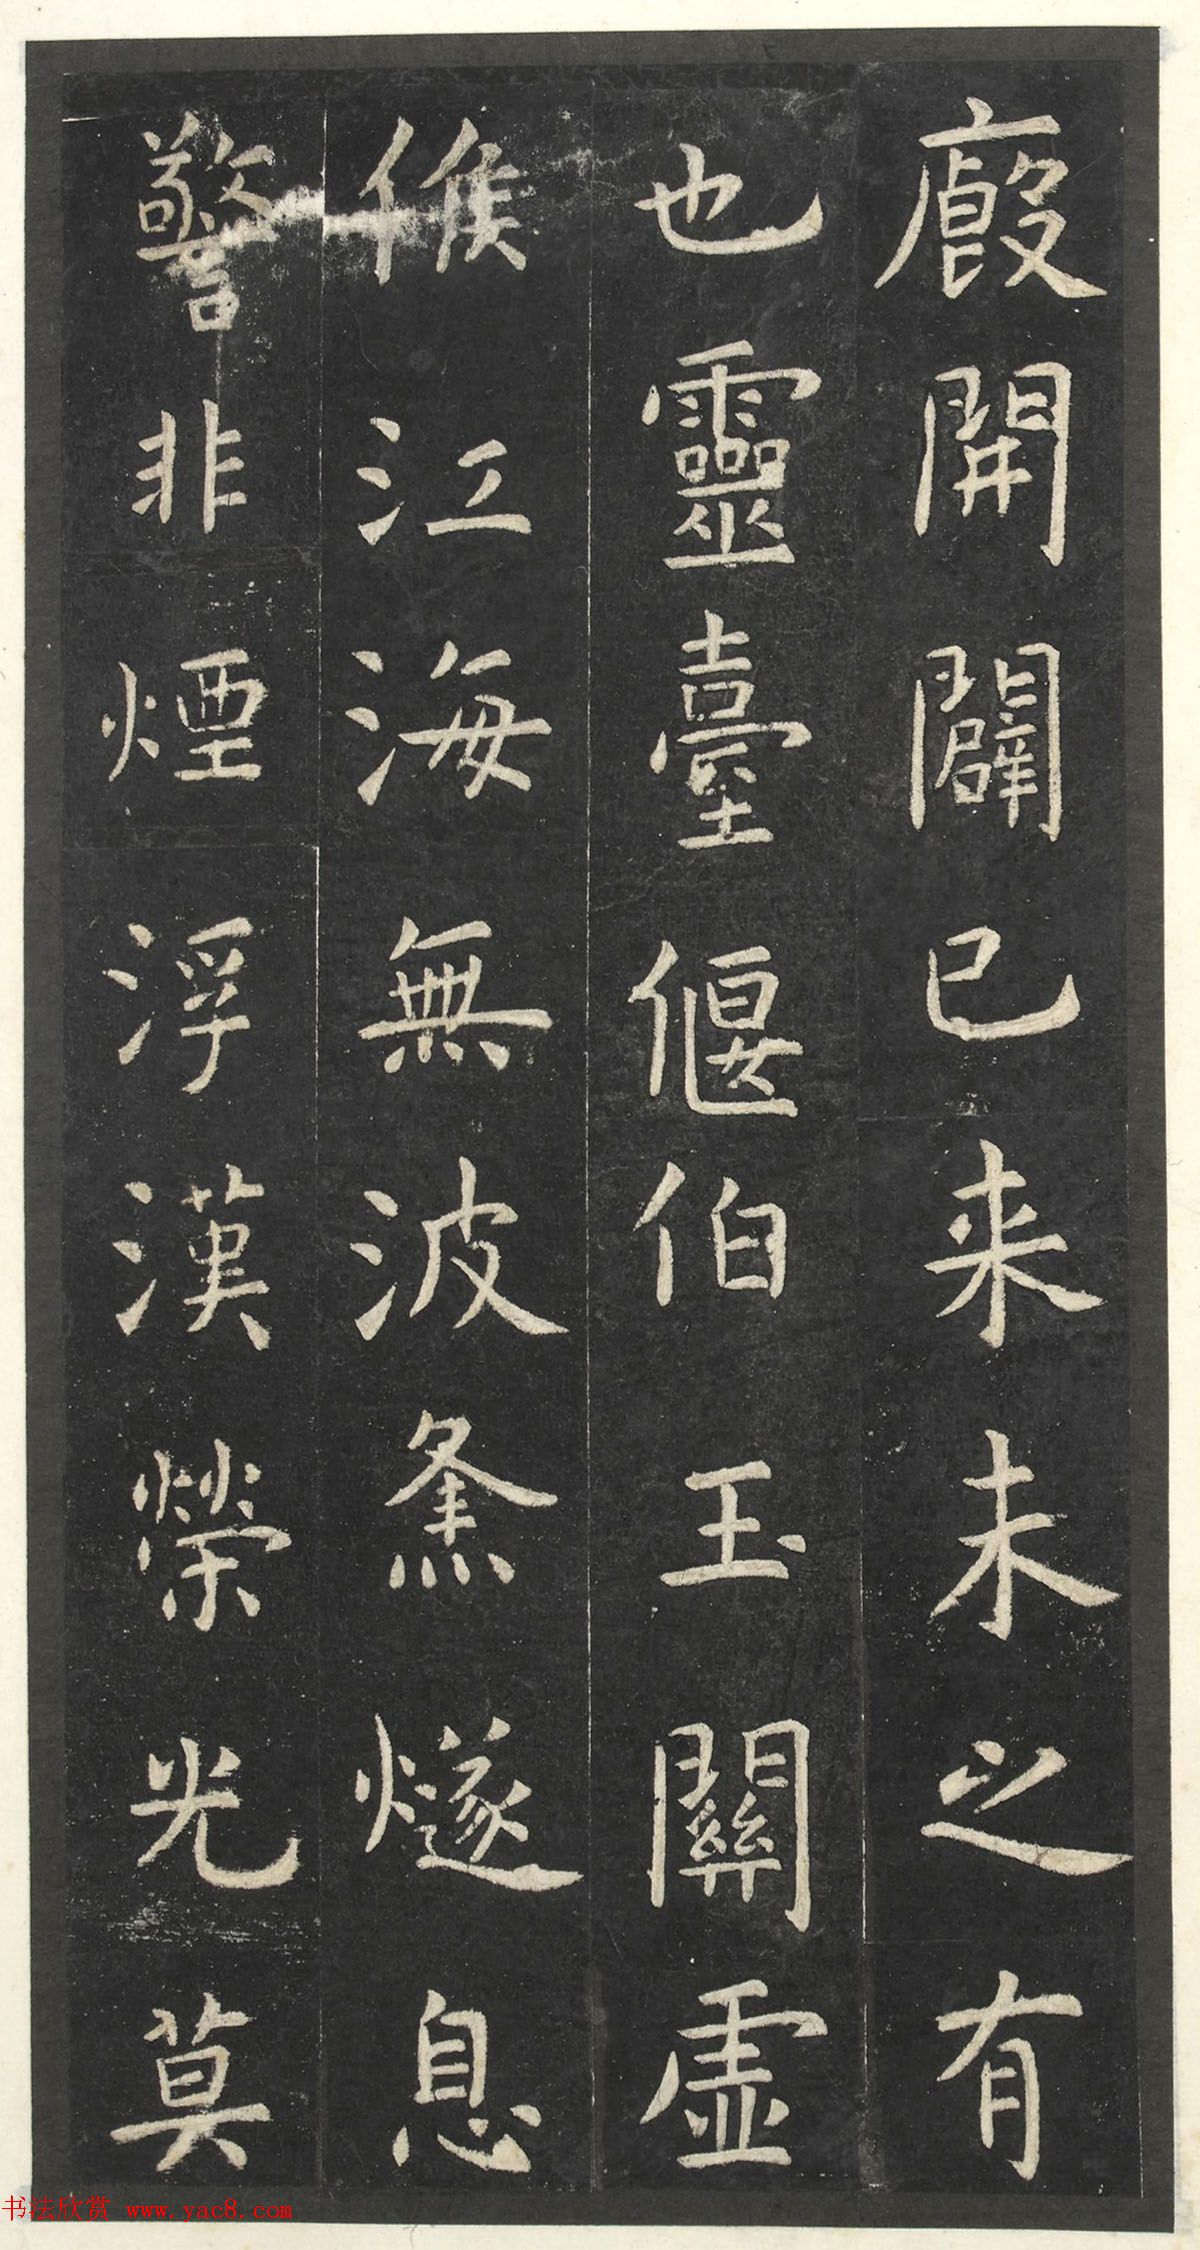 廄開闢已来未之有
也靈臺偃伯玉關虛
候江海無波烽燧息
警非煙浮漢榮光莫
书法欣赏 www.yac8.com